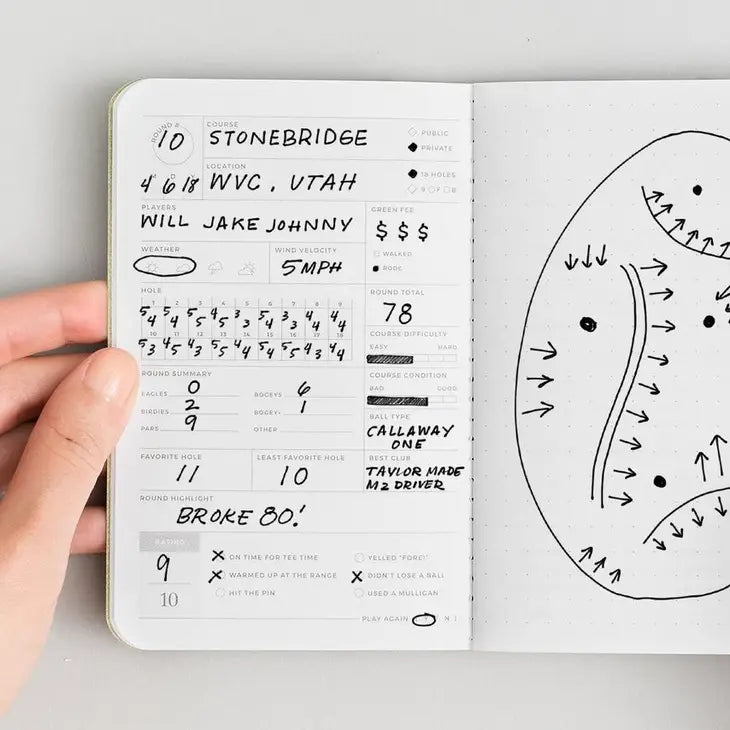 ROUND # 10
COURSE STONEBRIDGE
PUBLIC
PRIVATE
M D Y 4 6 18
LOCATION WVC, UTAH
18 HOLES
9 F B
PLAYERS
WILL JAKE JOHNNY
GREEN FEE
$ $ $
WALKED
RODE
WEATHER
WIND VELOCITY
5MPH
HOLE
1 2 3 4 5 6 7 8 9
10 11 12 13 14 15 16 17 18
ROUND TOTAL
78
COURSE DIFFICULTY
EASY HARD
COURSE CONDITION
BAD GOOD
ROUND SUMMARY
EAGLES 0 BOGEYS 6
BIRDIES 2 BOGEY+ 1
PARS 9 OTHER
BALL TYPE
CALLAWAY
ONE
FAVORITE HOLE
11
LEAST FAVORITE HOLE
10
BEST CLUB
TAYLOR MADE
M2 DRIVER
ROUND HIGHLIGHT
BROKE 80!
RATING
9
10
X ON TIME FOR TEE TIME
YELLED "FORE!"
X WARMED UP AT THE RANGE
X DIDN'T LOSE A BALL
HIT THE PIN
USED A MULLIGAN
PLAY AGAIN Y N